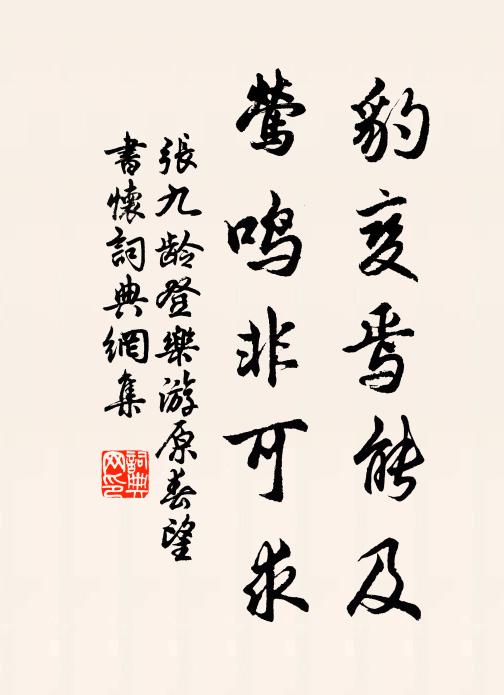 豹变焉能及
莺鸣非可求
張九龄登樂游原春望
書懷詞典網集
詞典网印